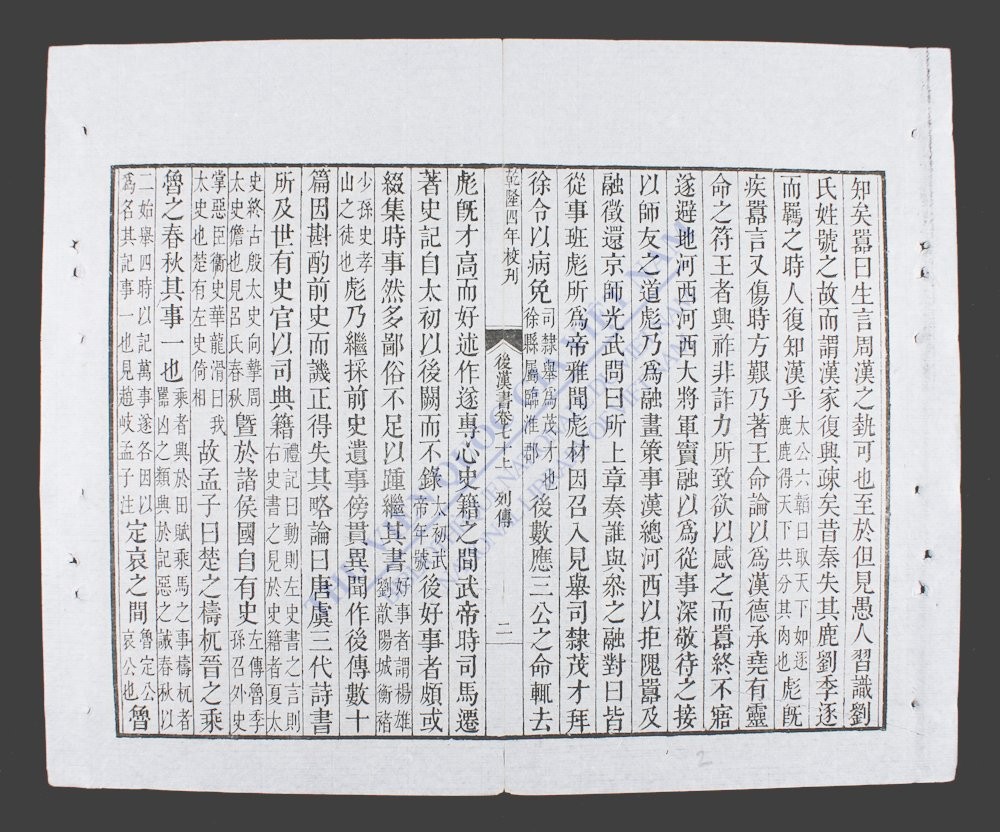 知矣囂曰生言周漢之埶可也至於但見愚人習識劉
氏姓號之故而謂漢家復興疎矣昔秦失其鹿劉季逐
而羈之時人復知漢乎太公六韜曰取天下如逐鹿鹿得天下共分其肉也彪既
疾囂言又傷時方艱乃著王命論以爲漢德承堯有靈
命之符王者興祚非詐力所致欲以感之而囂終不寤
遂避地河西河西大將軍竇融以爲從事深敬待之接
以師友之道彪乃爲融畫策事漢總河西以拒隗囂及
融徵還京師光武問曰所上章奏誰與參之融對曰皆
從事班彪所爲帝雅聞彪材因召入見舉司隸茂才拜
徐令以病免司隸舉爲茂才也徐縣屬臨淮郡後數應三公之命輒去
乾隆四年校刋
後漢書卷七十上 列傳
二
彪既才高而好述作遂專心史籍之間武帝時司馬遷
著史記自太初以後闕而不錄太初武帝年號後好事者頗或
綴集時事然多鄙俗不足以踵繼其書好事者謂楊雄劉歆陽城衡褚少孫史孝山之徒也彪乃繼採前史遺事傍貫異聞作後傳數十
篇因斟酌前史而譏正得失其略論曰唐虞三代詩書
所及世有史官以司典籍禮記曰動則左史書之言則右史書之見於史籍者夏太史終古殷太史向摯周太史儋也見呂氏春秋曁於諸侯國自有史左傳魯季孫召外史掌惡臣衞史華龍滑曰我太史也楚有左史倚相故孟子曰楚之檮杌晉之乘
魯之春秋其事一也乘者興於田賦乘馬之事檮杌者嚚凶之類興於記惡之誡春秋以二始舉四時以記萬事遂各因以爲名其記事一也見趙岐孟子注定哀之間魯定公哀公也魯
THE VIETNAMESE NÔM
2